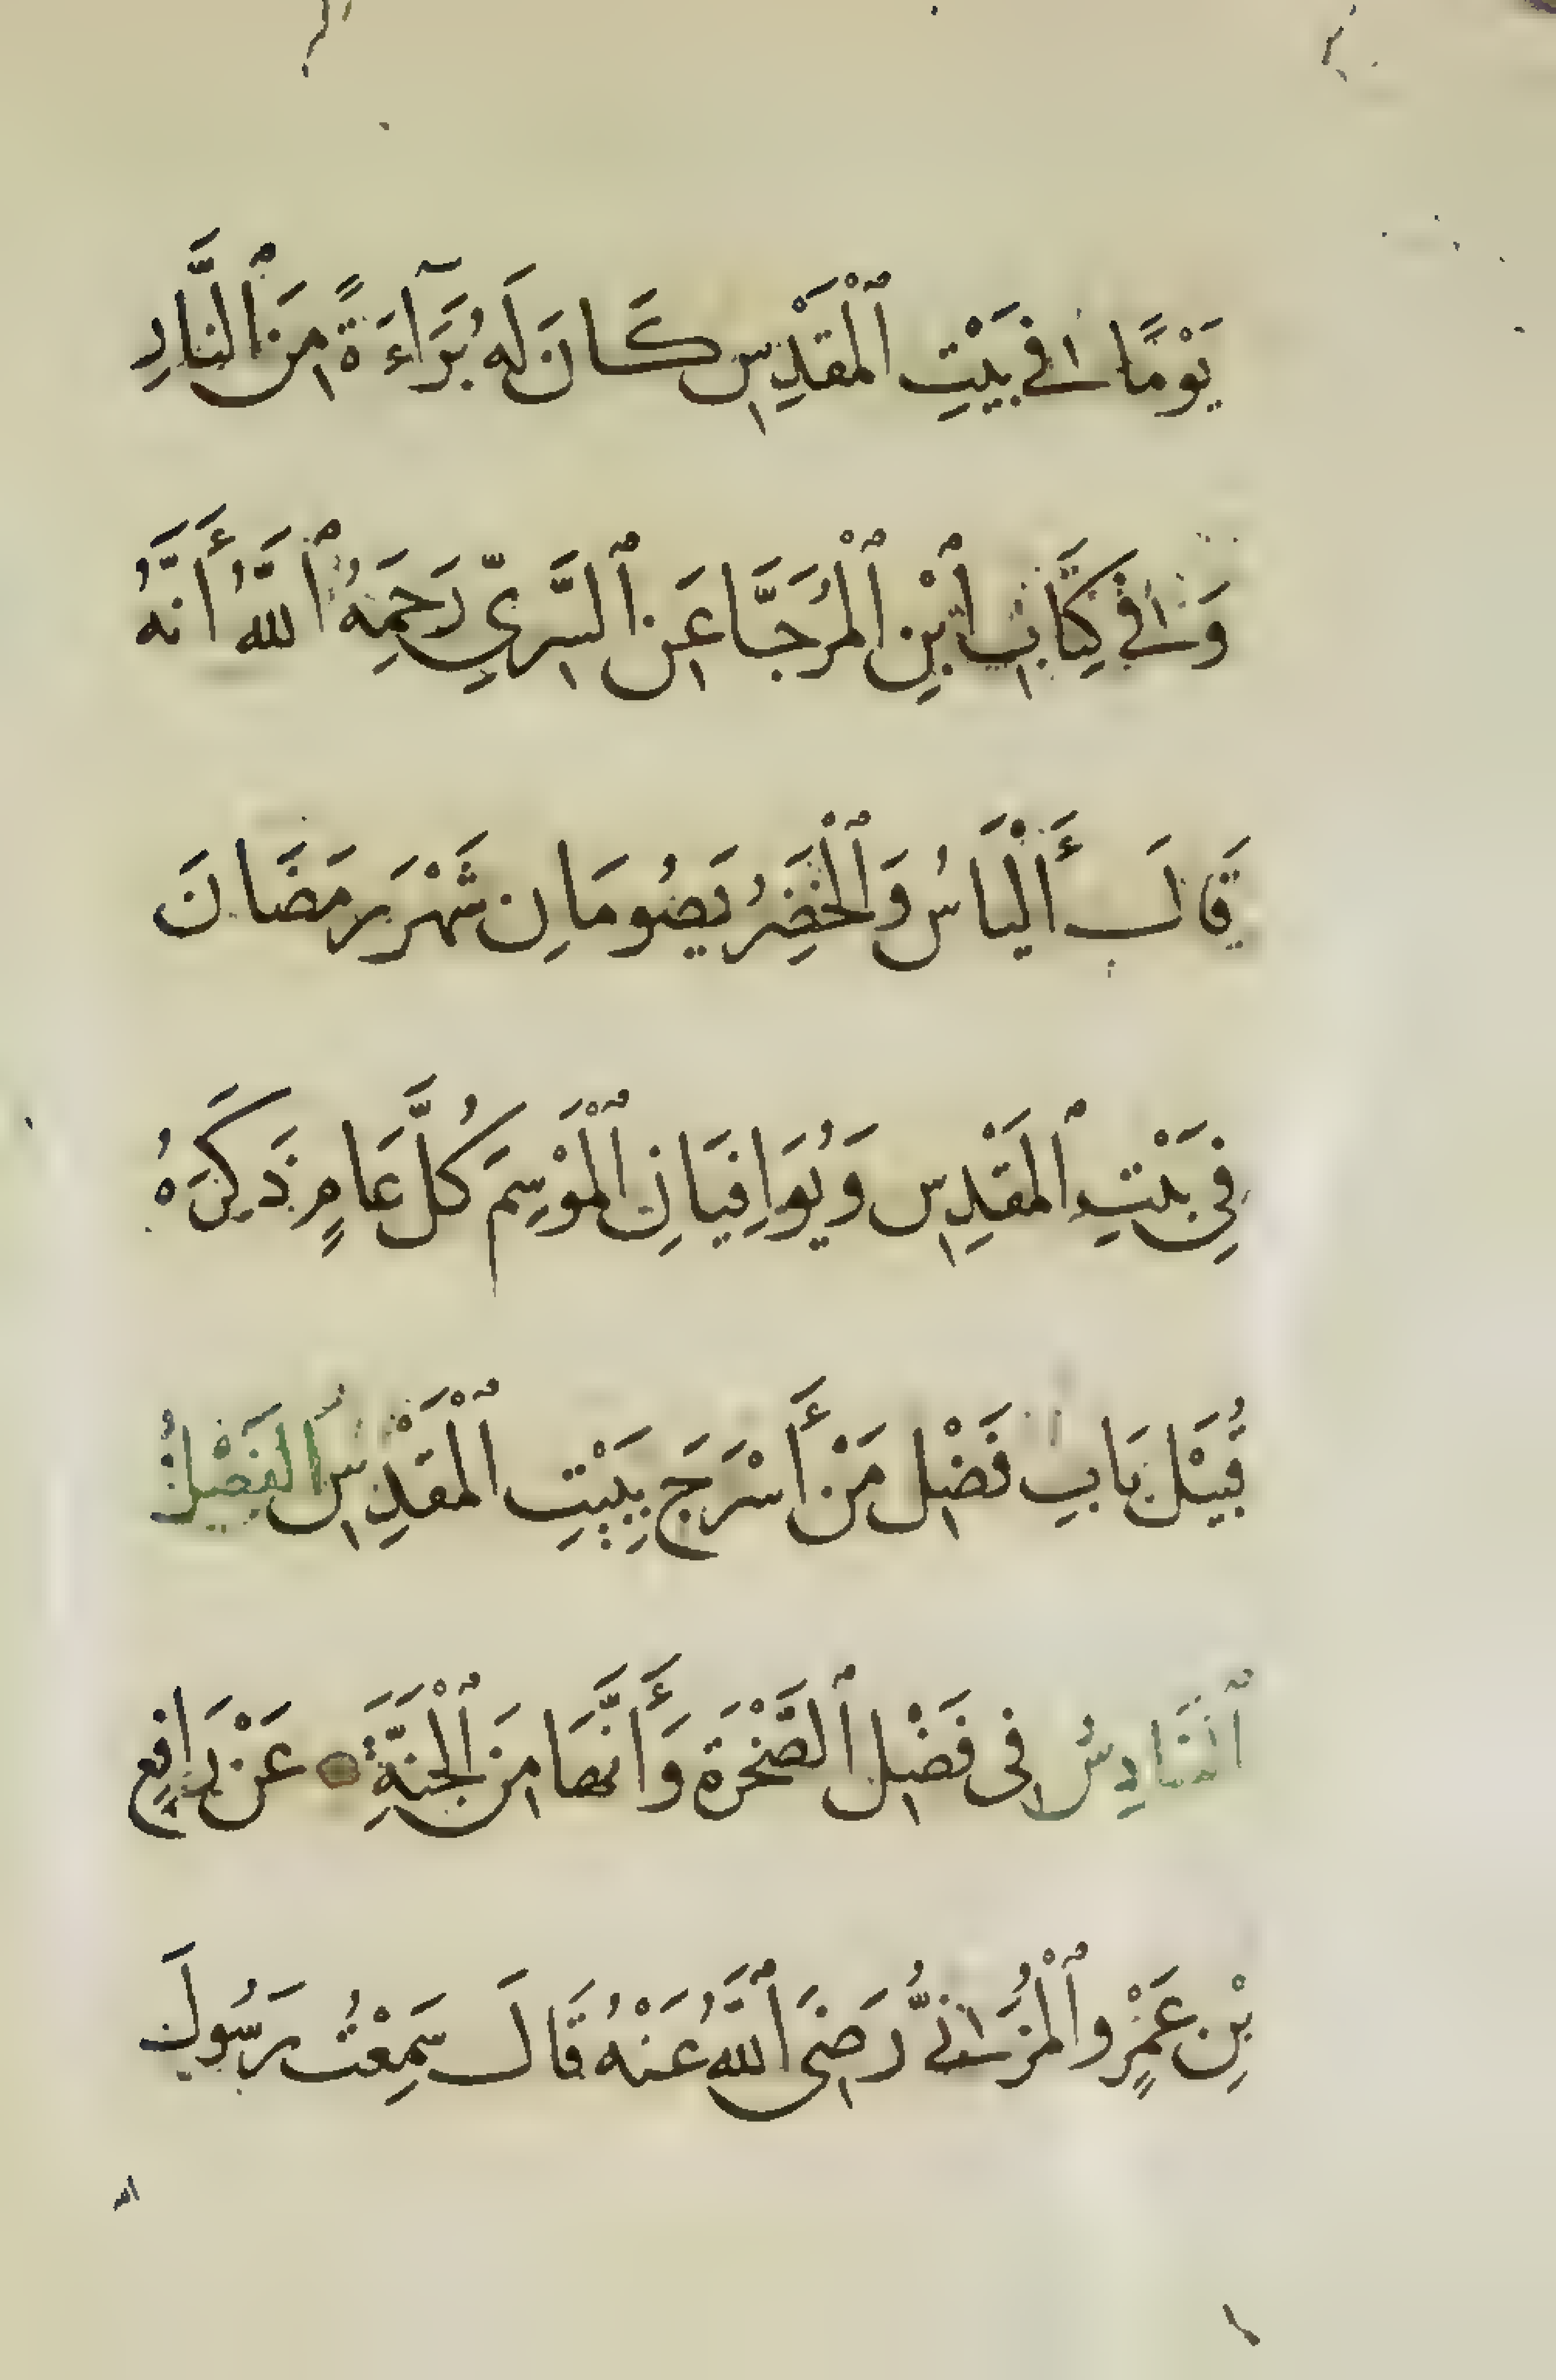 يَوْمًا فِي بَيْتِ ٱلْمَقْدِسِ كَانَ لَهُ بَرَآءَةً مِنَ ٱلنَّارِ
وَفِي كِتَابِ ٱبْنِ ٱلْمُرَجَّا عَنِ ٱلسَّرِيِّ رَحِمَهُ ٱللَّهُ أَنَّهُ
قَالَ أَلْيَاسُ وَٱلْخَضِرُ يَصُومَانِ شَهْرَ رَمَضَانَ
فِي بَيْتِ ٱلْمَقْدِسِ وَيُوَافِيَانِ ٱلْمَوْسِمَ كُلَّ عَامٍ ذَكَرَهُ
قُبَيْلَ بَابِ فَضْلِ مَنْ أَسْرَجَ بِبَيْتِ ٱلْمَقْدِسِ ٱلْفَصْلُ
ٱلسَّادِسُ فِى فَضْلِ ٱلصَّخْرَةِ وَأَنَّهَا مِنَ ٱلْجَنَّةِ عَنْ رَافِعِ
بْنِ عَمْرٍو ٱلْمُزَنِيُّ رَضِىَ ٱللَّهُ عَنْهُ قَالَ سَمِعْتُ رَسُولَ